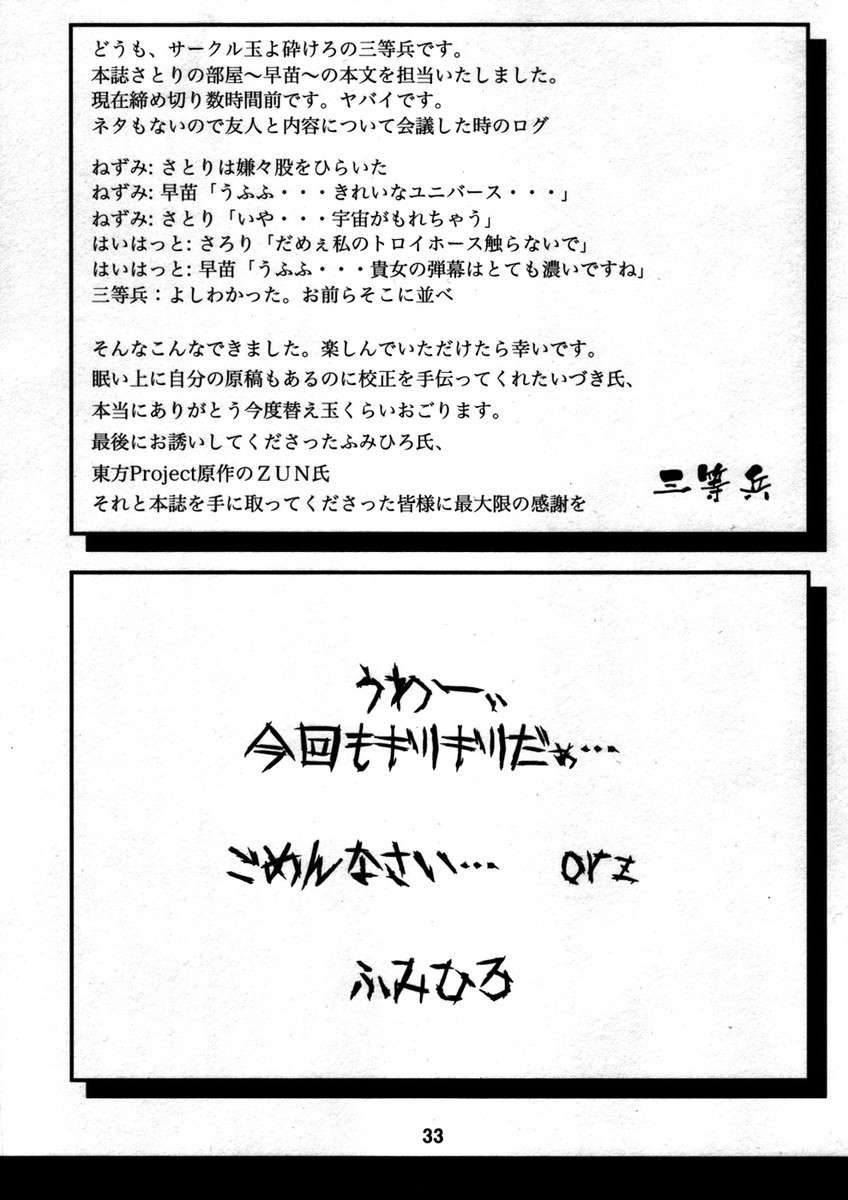 どうも、サークル玉よ砕けろの三等兵です。
本誌さとりの部屋～早苗～の本文を担当いたしました。
現在締め切り数時間前です。ヤバイです。
ネタもないので友人と内容について会議した時のログ
ねずみ: さとりは嫌々股をひらいた
ねずみ: 早苗「うふふ・・・きれいなユニバース・・・」
ねずみ: さとり「いや・・・宇宙がもれちゃう」
はいはっと: さろり「だめぇ私のトロイホース触らないで」
はいはっと: 早苗「うふふ・・・貴女の弾幕はとても濃いですね」
三等兵：よしわかった。お前らそこに並べ
そんなこんなできました。楽しんでいただけたら幸いです。
眠い上に自分の原稿もあるのに校正を手伝ってくれたいづき氏、
本当にありがとう今度替え玉くらいおごります。
最後にお誘いしてくださったふみひろ氏、
東方Project原作のＺＵＮ氏
それと本誌を手に取ってくださった皆様に最大限の感謝を
三等兵
うわーぃ
今回もギリギリだぁ…
ごめんなさい… orz
ふみひろ
33